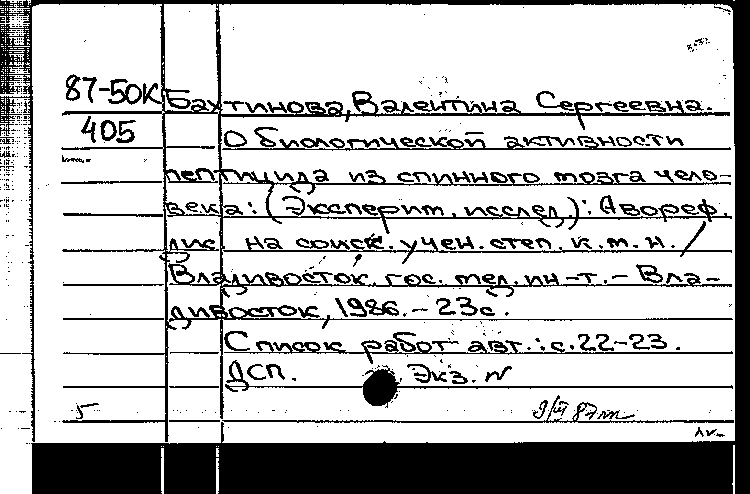 87-50К Бахтинова, Валентина Сергеевна.
405 О биологической активности
пептицида из спинного мозга чело-
века: (Эксперим. исслед.): Автореф.
дис. на соиск. учен. степ. к. м. н. /
Владивосток. гос. мед. ин-т. - Вла-
дивосток, 1986. - 23с.
Список работ авт.: с. 22-23.
ДСП. Экз. N
5